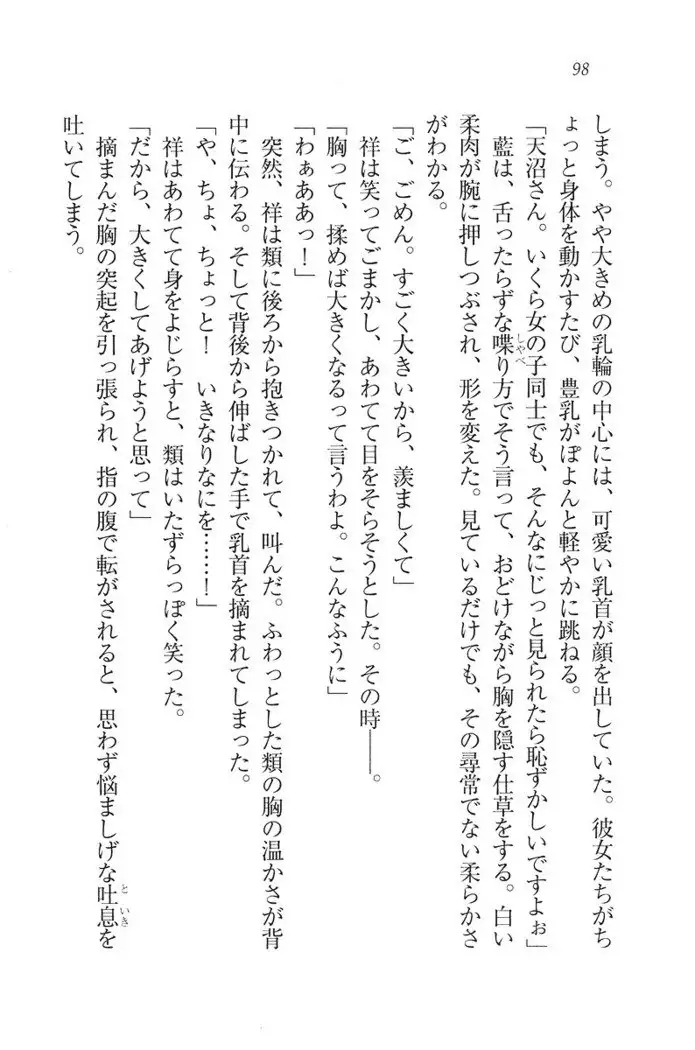 98
しまう。やや大きめの乳輪の中心には、可愛い乳首が顔を出していた。彼女たちがち
ょっと身体を動かすたび、豊乳がぽよんと軽やかに跳ねる。
「天沼さん。いくら女の子同士でも、そんなにじっと見られたら恥ずかしいですよぉ」
藍は、舌ったらずな喋り方でそう言って、おどけながら胸を隠す仕草をする。白い
しゃべ
柔肉が腕に押しつぶされ、形を変えた。見ているだけでも、その尋常でない柔らかさ
がわかる。
「ご、ごめん。すごく大きいから、羨ましくて」
祥は笑ってごまかし、あわてて目をそらそうとした。その時――。
「胸って、揉めば大きくなるって言うわよ。こんなふうに」
「わぁああっ！」
突然、祥は類に後ろから抱きつかれて、叫んだ。ふわっとした類の胸の温かさが背
中に伝わる。そして背後から伸ばした手で乳首を摘まれてしまった。
「や、ちょ、ちょっと！　いきなりなにを……！」
祥はあわてて身をよじらすと、類はいたずらっぽく笑った。
「だから、大きくしてあげようと思って」
摘まんだ胸の突起を引っ張られ、指の腹で転がされると、思わず悩ましげな吐息を
といき
吐いてしまう。